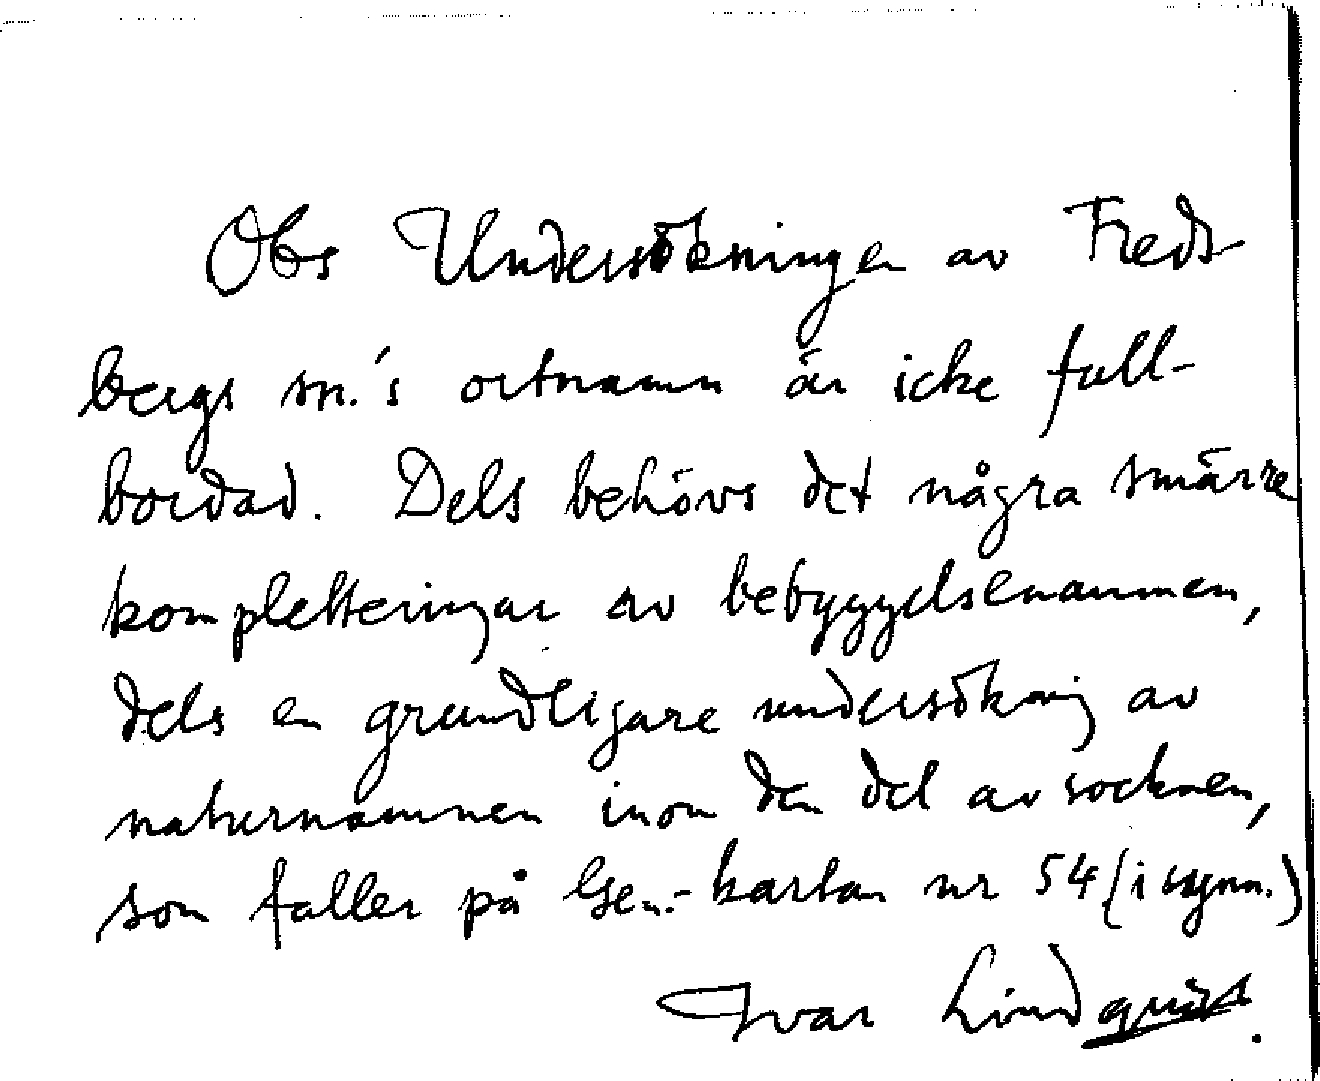 Obs Undersökningen av Freds-
bergs sn.'s ortnamn är icke full-
bordad. Dels behövs det några smärre
kompletteringar av bebyggelsenamnen,
dels en grundligare undersökning av
naturnamnen inom den del av socknen,
som faller på Gen.-kartan nr 54 (i
Ivar Lindquist.